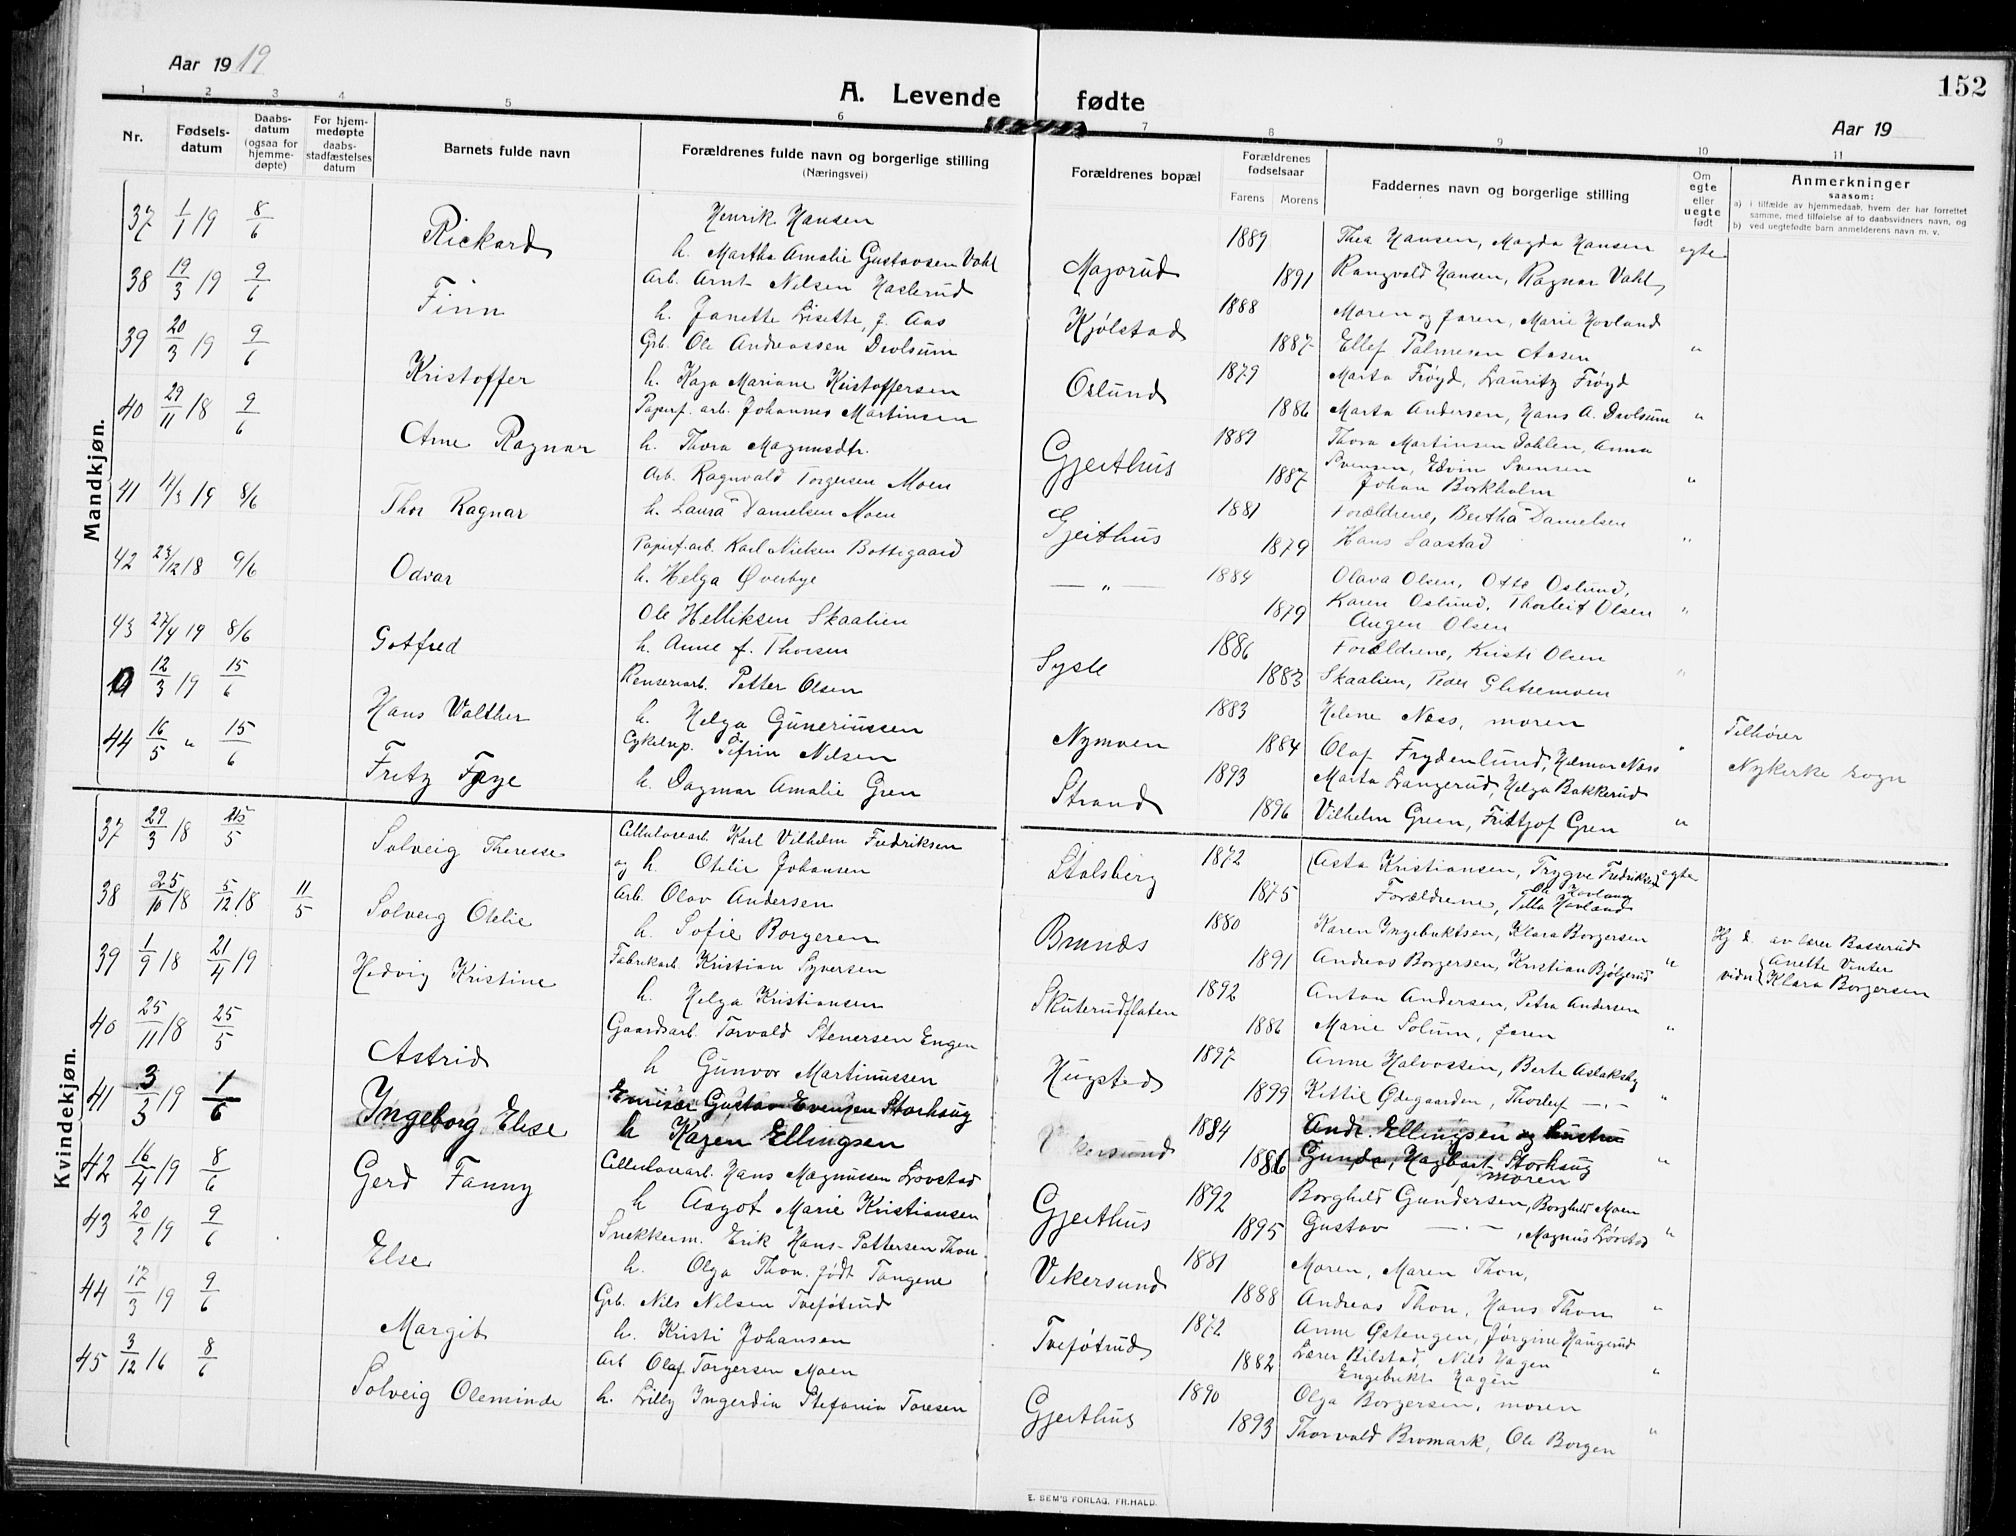 Aar 1919
A. Levende fødte
152
Aar 19
1 2 3 4 5 6 7 8 9 10 11
Nr.
Fødselsdatum
Daabsdatum (ogsaa for hjemmedøpte)
For hjemmedøpte daabsstadfæstelses datum
Barnets fulde navn
Forældrenes fulde navn og borgerlige stilling (Næringsvei)
Forældrenes bopæl
Forældrenes fødselsaar
Farens Morens
Faddernes navn og borgerlige stilling
Om egte eller uegte født
Anmerkninger
saasom:
a) i tilfælde av hjemmedaab, hvem der har forrettet samme, med tilføielse af to daabsvidners navn, og
b) ved uegtefødte barn anmelderens navn m. v.
Mandkjøn.
37 1/1 19 8/6 Rickard Henrik Hansen 1889 Thea Hansen, Magda Hansen egte
h. Martha Amalie Gustavsen Vahl Magorud 1891 Rangvald Hansen, Ragnar Vahl
38 19/3 19 9/6 Finn Arb. Arnt Nilsen Haslerud 1888 Moren og faren, Marie Hovland
h. Janette Lisette, f. Aas Kjølstad 1887 Ellef Palmesen Aasen "
39 20/3 19 9/6 Kristoffer Grb. Ole Andreassen Devlsum 1879 Marta Frøyd, Lauritz Frøyd
h. Kaja Mariane Kristoffersen Oslund 1886 Marta Andersen, Hans A. Devlsum "
40 29/11 18 9/6 Arne Ragnar Papirf. arb. Johannes Martinsen 1889 Thora Martinsen Dahlen, Anna
h. Thora Magnusdtr. Gjeithus 1887 Svensen, Edvin Svensen
Johan Borkholm "
41 11/3 19 8/6 Thor Ragnar Arb. Ragnvald Torgersen Moen 1881 Forældrene, Bertha Danielsen
h. Laura Danielsen Moen Gjeithus 1879 Hans Saastad "
42 23/12 18 9/6 Odvar Papirf. arb. Karl Nielsen Bottegaard 1884 Olava Olsen, Otto Oslund,
h. Helga Øverbye — " — 1879 Karen Oslund, Thorleif Olsen "
Augen Olsen
43 27/4 19 8/6 Gotfred Ole Helliksen Skaalien 1886 Forældrene, Kristi Olsen
h. Anne f. Thorsen Sysle 1883 Skaalien, Peder Glitremoen "
0 12/3 19 15/6 Hans Walther Renseriarb. Petter Olsen 1883 Helene Næss, moren Tilhører
h. Helga Guneriussen Nymoen 1884 Olaf Frydenlund, Helmar Næss " Nykirke sogn
44 16/5 " 15/6 Fritz Faye Cykelrep. Nilsen 1893 Marta Langerud, Helga Bakkerud
h. Dagmar Amalie Gren Strand 1896 Vilhelm Green, Fritjof Gren "
Kvindekjøn.
37 29/3 18 25/5 Solveig Therese Cellulosearb. Karl Vilhelm Fredriksen 1872 Asta Kristiansen, Trygve Fredriksen egte
og h Otelie Johansen Stalsberg 1875 Forældrene, Tilla Hovland
38 25/10 18 5/12 18 11/5 Solveig Otelie Arb. Olav Andersen 1880 Karen Ingebriktsen, Klara Borgersen Hj d. av lærer Basserud
h. Sofie Borgeren Brunæs 1891 Andreas Borgersen, Kristian Bjølgerud " vidn { Anette Vinter
Klara Borgersen
39 1/9 18 21/4 19 Hedvig Kristine Fabrikarb. Kristian Syversen 1892 Anton Andersen, Petra Andersen
h. Helga Kristiansen Skuterudflaten 1886 Marie Solum, faren "
40 25/11 18 25/5 Astrid Gaardsarb. Torvald Stenersen Engen 1897 Anne Halvorsen, Berte Aslaksby
h Gunvor Martinussen Hugsted 1899 Kittil Ødegaarden, Thorleif — . — "
41 3/3 19 1/6 Ingeborg Else Gustav Evensen Storhaug 1884 Andr. Ellingsen og hustru
h Karen Ellingsen Vikersund 1886 Gunda, Hagbart Storhaug "
moren
42 16/4 19 8/6 Gerd Fanny Cellulosearb. Hans Magnussen Lövstad 1892 Borghild Gundersen, Borghild Moen
h Aagot Marie Kristiansen Gjeithus 1895 Gustav — . — , Magnus Lövstad "
43 20/2 19 9/6 Else Snekkerm. Erik Hans-Pettersen Thon 1881 Moren, Maren Thon,
h. Olga Thon, født Tangene Vikersund 1888 Andreas Thon, Hans Thon "
44 17/3 19 9/6 Margit Grb. Nils Nilsen Tveføtrud 1872 Anne Østengen, Jørgine Haugerud
h. Kristi Johansen Tveføtrud 1882 Lærer Bilstad, Nils Hagen "
Engebrikt Hagen
45 3/12 16 8/6 Solveig Oleminde Arb Olaf Torgersen Moen 1890 Olga Borgersen, moren
h. Lilly Ingerdia Stefania Toresen Gjeithus 1893 Thorvald Bromark, Ole Borgen "
E. SEM'S FORLAG, FR.HALD.